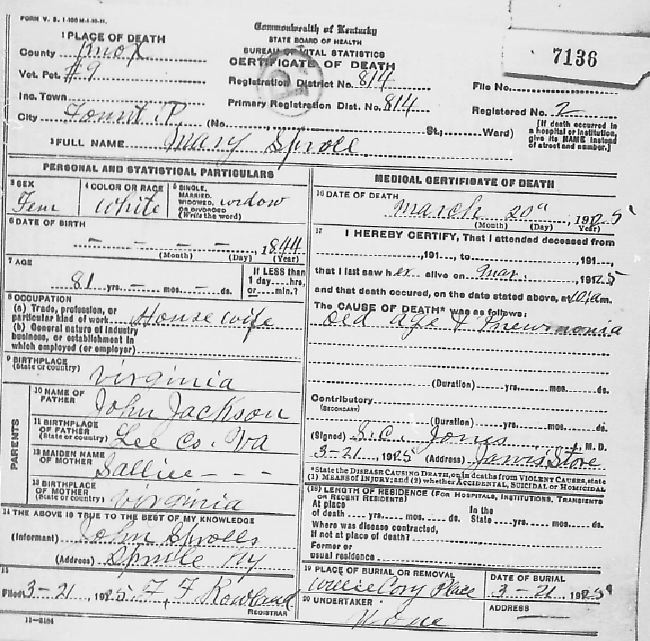 FORM V. S. 1-
Commonwealth of Kentucky
STATE BOARD OF HEALTH
BUREAU OF VITAL STATISTICS
CERTIFICATE OF DEATH
7136
1 PLACE OF DEATH
County Knox
Vot. Pct. #9
Inc. Town
City Fount
(No. St., Ward)
Registration District No. 814
Primary Registration Dist. No. 814
File No.
Registered No. 2
[If death occurred in
a hospital or institution,
give its NAME instead
of street and number.]
2 FULL NAME Mary Sprole
PERSONAL AND STATISTICAL PARTICULARS
3 SEX Fem
4 COLOR OR RACE White
5 SINGLE, MARRIED, WIDOWED, OR DIVORCED (Write the word) widow
6 DATE OF BIRTH
- - - - - 1844
(Month) (Day) (Year)
7 AGE
81 yrs. - mos. - ds.
If LESS than
1 day....hrs.
or....min.?
8 OCCUPATION
(a) Trade, profession, or
particular kind of work House wife
(b) General nature of industry
business, or establishment in
which employed (or employer)
9 BIRTHPLACE
(State or country) Virginia
PARENTS
10 NAME OF
FATHER John Jackson
11 BIRTHPLACE
OF FATHER
(State or country) Lee Co. Va
12 MAIDEN NAME
OF MOTHER Sallie - -
13 BIRTHPLACE
OF MOTHER
(State or country) Virginia
14 THE ABOVE IS TRUE TO THE BEST OF MY KNOWLEDGE
(Informant) John Sprolls
(Address) Sprule Ky
15
Filed 3-21 1925 F F Rowland
REGISTRAR
11-3184
MEDICAL CERTIFICATE OF DEATH
16 DATE OF DEATH
March 20th, 1925
(Month) (Day) (Year)
17 I HEREBY CERTIFY, That I attended deceased from
, 191...., to , 191....,
that I last saw her alive on Mar. 1925
and that death occurred, on the date stated above, at 10 a.m.
The CAUSE OF DEATH* was as follows:
Old Age & Pneumonia
(Duration) yrs. mos. ds.
Contributory
(SECONDARY)
(Duration) yrs. mos. ds.
(Signed) S.C. Jones, M. D.
3-21, 1925 (Address) Jarvis Store
*State the DISEASE CAUSING DEATH, or, in deaths from VIOLENT CAUSES, state
(1) MEANS OF INJURY; and (2) whether ACCIDENTAL, SUICIDAL or HOMICIDAL
(18) LENGTH OF RESIDENCE (FOR HOSPITALS, INSTITUTIONS, TRANSIENTS
OR RECENT RESIDENTS)
At place In the
of death yrs. mos. ds. State yrs. mos. ds.
Where was disease contracted,
if not at place of death?
Former or
usual residence
19 PLACE OF BURIAL OR REMOVAL DATE OF BURIAL
Place 3-21, 1925
20 UNDERTAKER ADDRESS
None